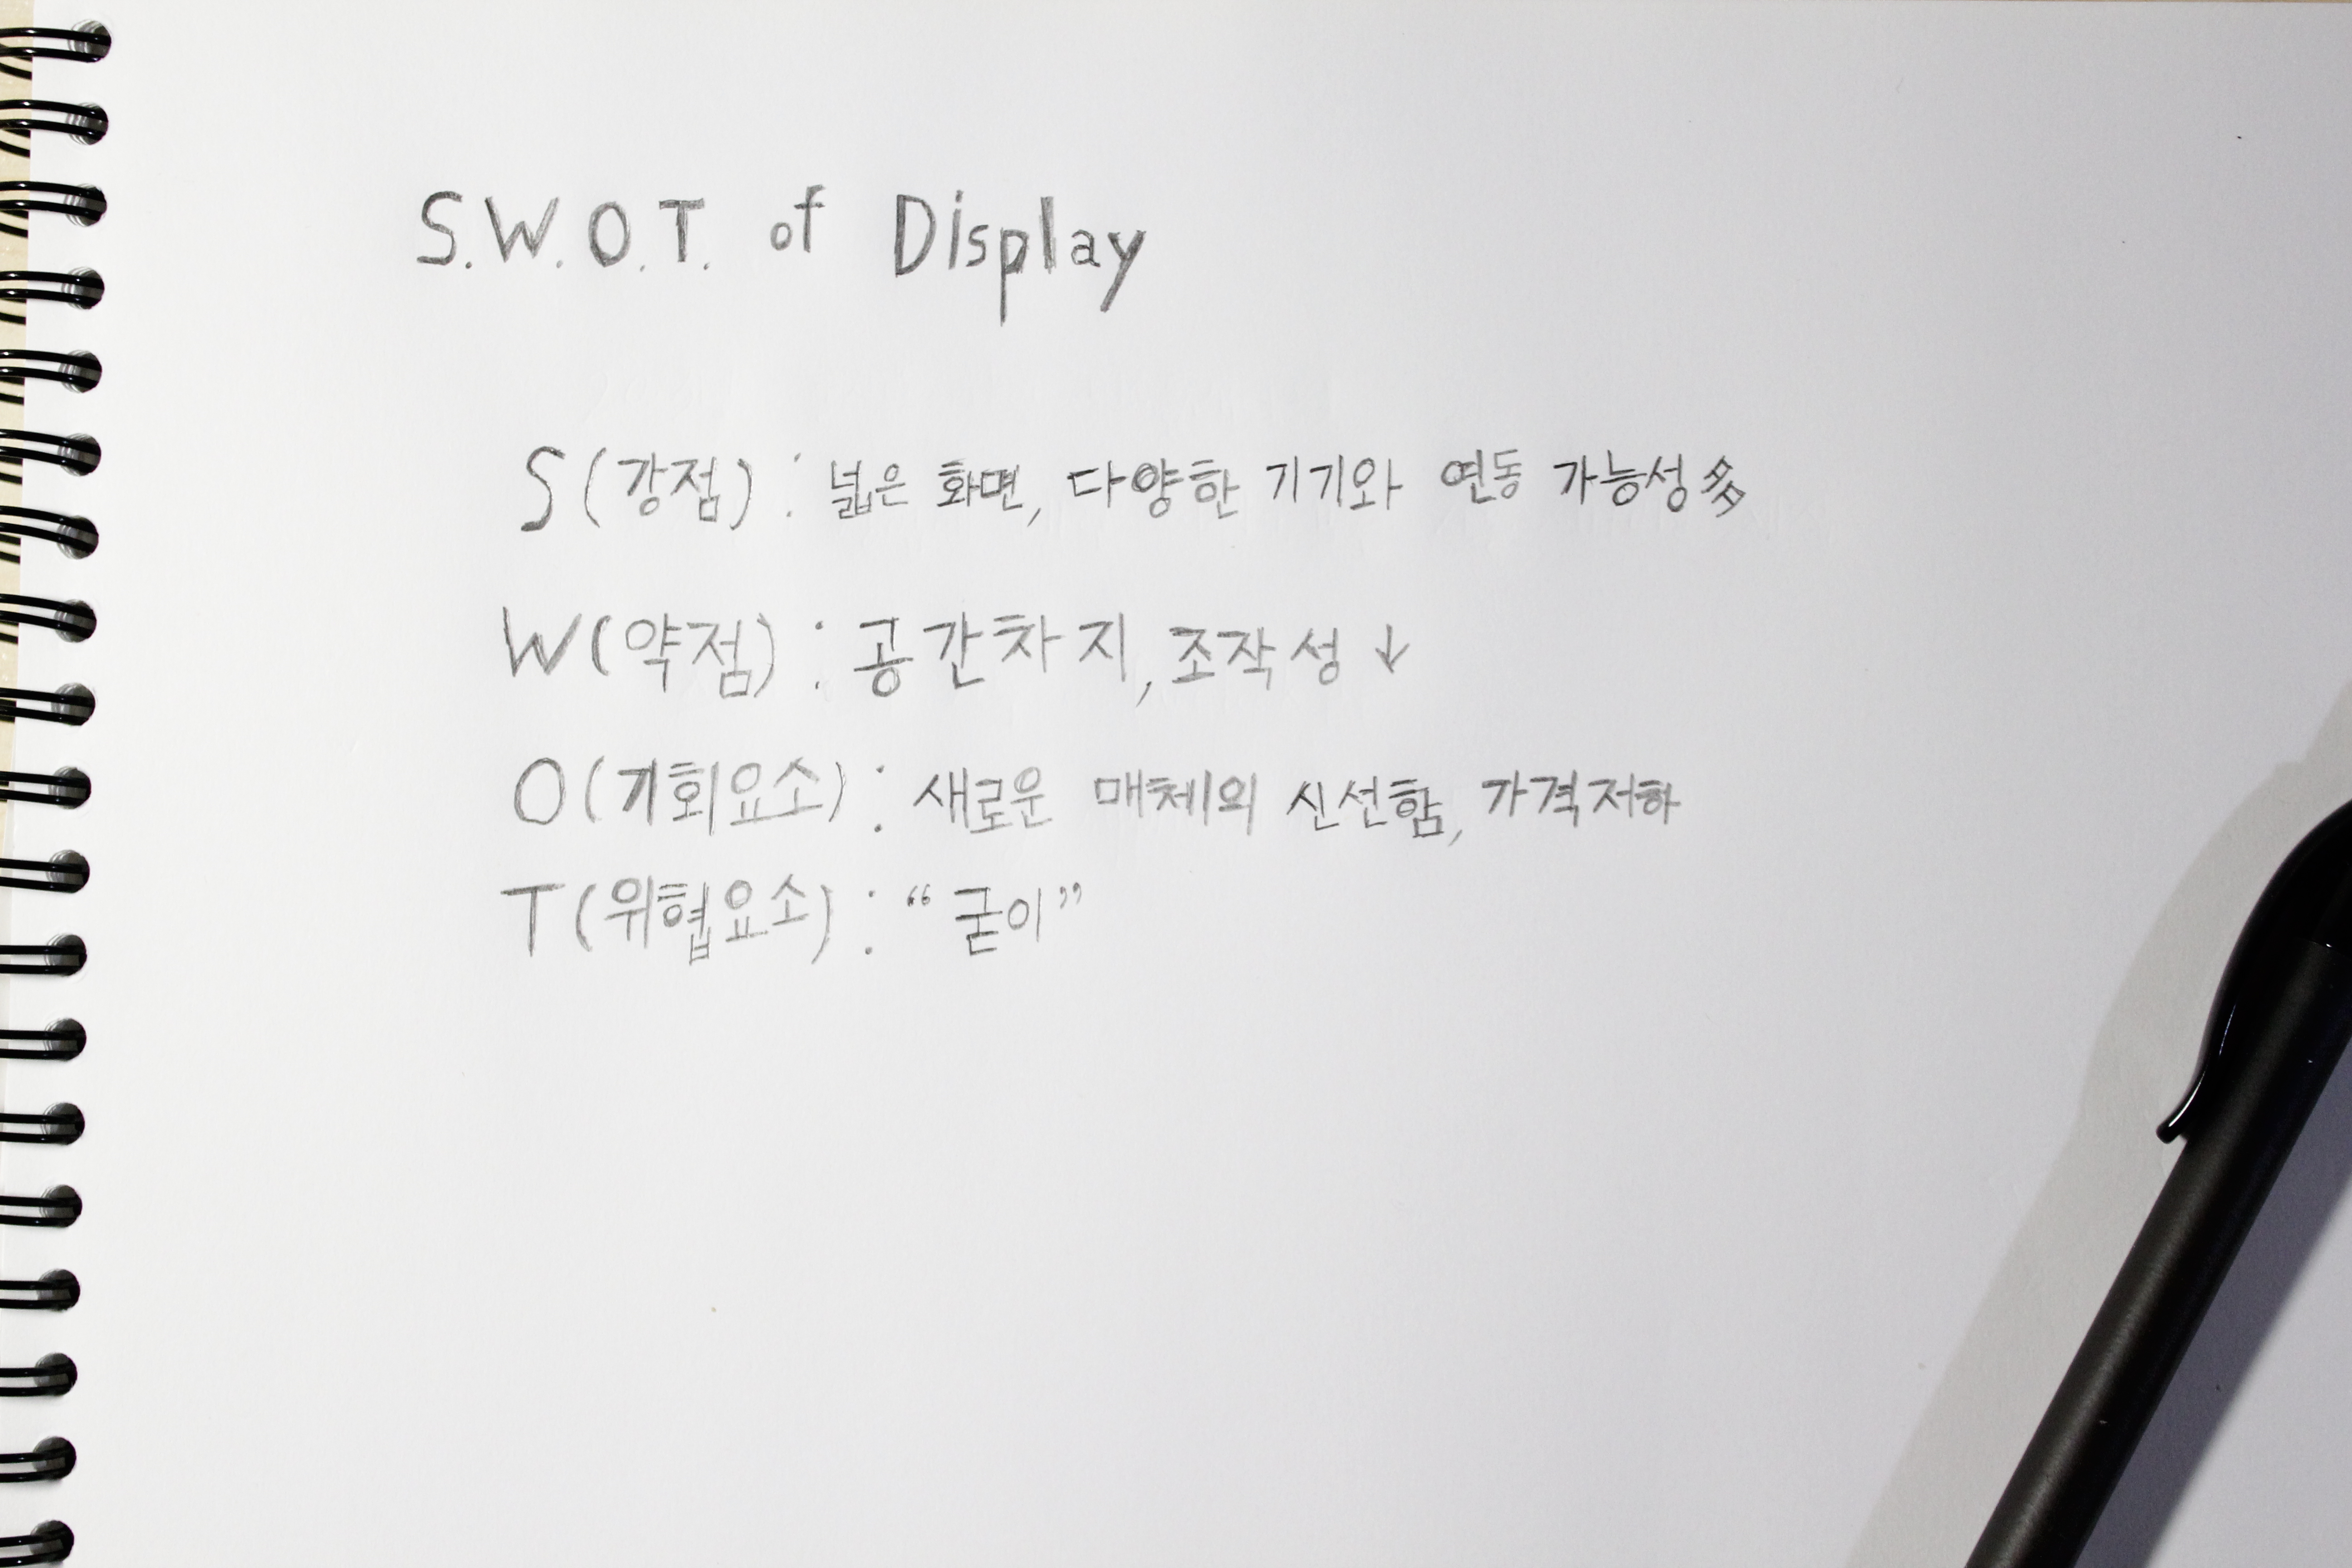 S.W.O.T. of Display
S(강점) : 넓은 화면, 다양한 기기와 연동 가능성多
W(약점) : 공간차지, 조작성↓
O(기회요소) : 새로운 매체의 신선함, 가격저하
T(위협요소) : “굳이”